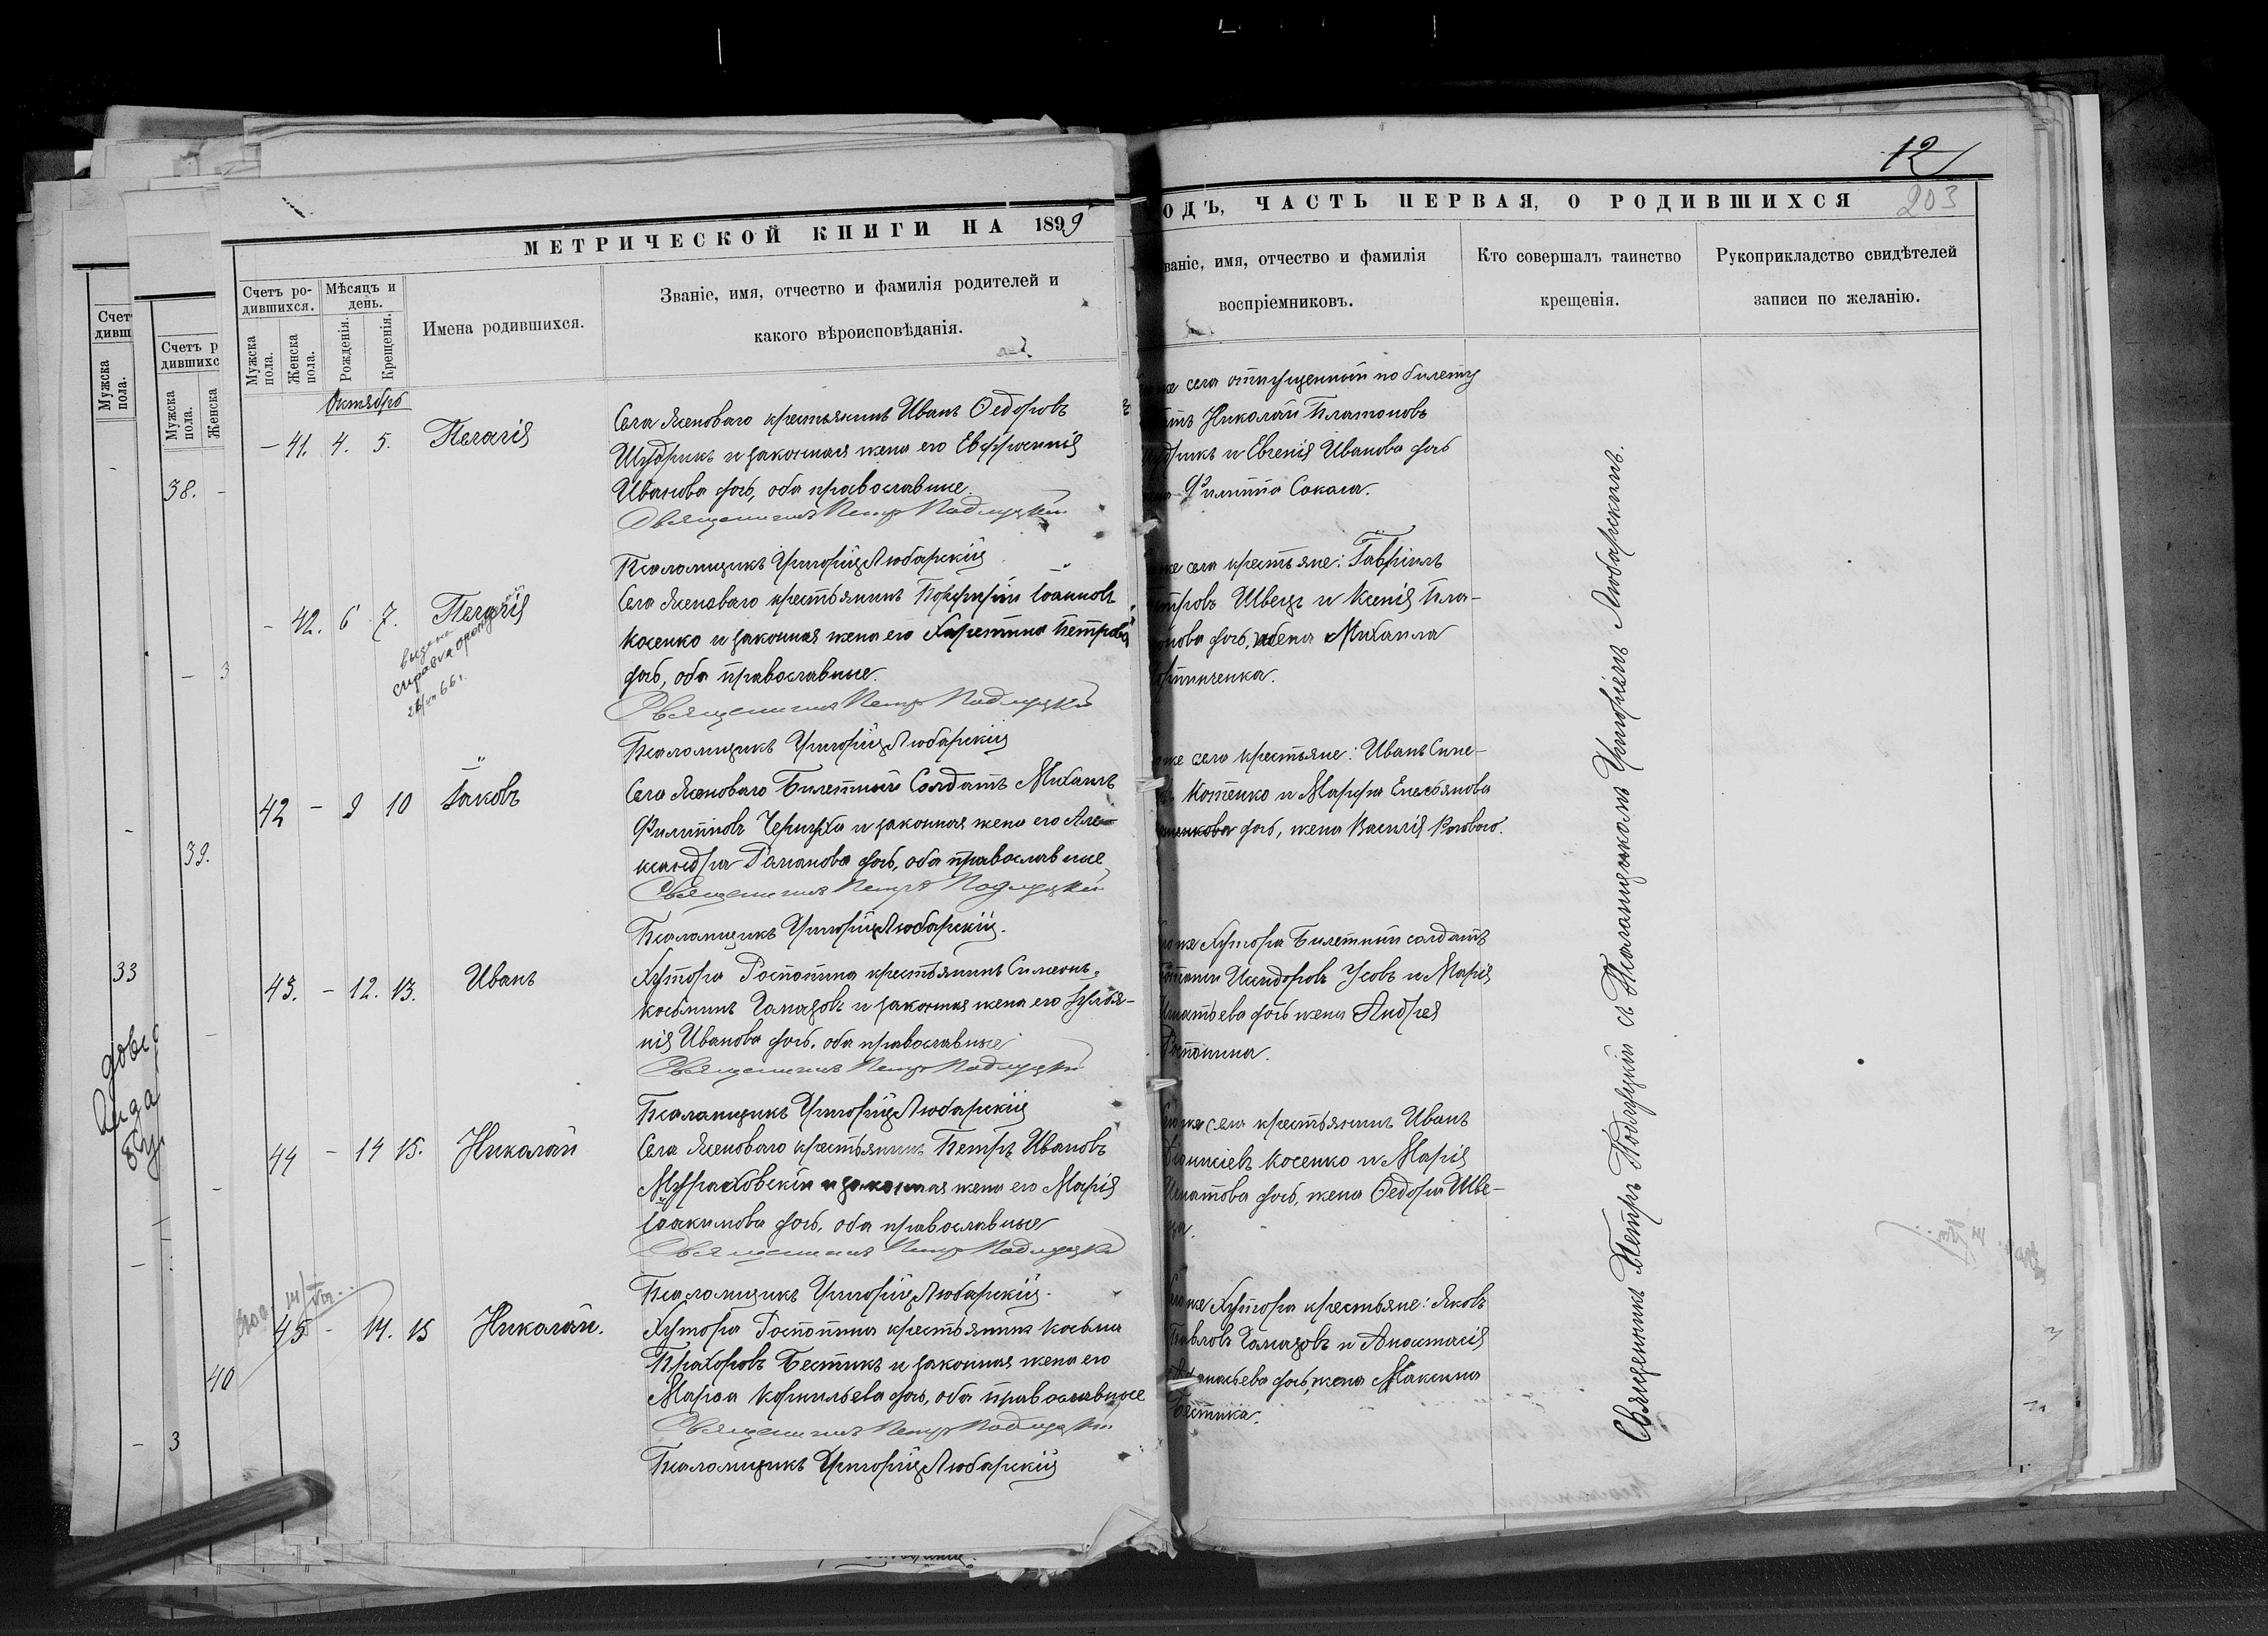 12
203
МЕТРИЧЕСКОЙ КНИГИ НА 1899
ОДЪ, ЧАСТЬ ПЕРВАЯ, О РОДИВШИХСЯ
Счетъ ро-
дившихся.
Мужска
пола.
Женска
пола.
Мѣсяцъ и
день.
Рожденія.
Крещенія.
Имена родившихся.
Званіе, имя, отчество и фамилія родителей и
какого вѣроисповѣданія.
ваніе, имя, отчество и фамилія
воспріемниковъ.
Кто совершалъ таинство
крещенія.
Рукоприкладство свидѣтелей
записи по желанію.
Октябрь
– 41. 4. 5. Пелагія
Села Ясеноваго крестьянинъ Иванъ Ѳедоровъ
Шудрикъ и законная жена его Евфросинія
Иванова дочь, оба православные.
Священникъ Петръ Подлуцкій
Псаломщикъ Григорій Любарскій
же села отпущенный по билету
Николай Платоновъ
и Евгенія Иванова дочь
Филиппа Сокала.
– 42. 6. 7. Пелагія
выдана
справка
Села Ясеноваго крестьянинъ Порфирій Іоанновъ
Косенко и законная жена его Харитина Петрова
дочь, оба православные.
Священникъ Петръ Подлуцкій
Псаломщикъ Григорій Любарскій
же села крестьяне: Гавріилъ
Петровъ Швецъ и Ксенія Пла-
тонова дочь, жена Михаила
42 – 9 10 Іаковъ
Села Ясеноваго Билетный Солдатъ Михаилъ
Филиповъ Черируха и законная жена его Але-
ксандра Романова дочь, оба православные
Священникъ Петръ Подлуцкій
Псаломщикъ Григорій Любарскій.
же села крестьяне: Иванъ Симе-
Котенко и Марфа Емельянова
дочь, жена Василія Рогового.
43. – 12. 13. Иванъ
Хутора Распопина крестьянинъ Симеонъ
Косьминъ Гамазовъ и законная жена его Іуліа-
нія Иванова дочь, оба православные
Священникъ Петръ Подлуцкій
Псаломщикъ Григорій Любарскій
же Хутора Билетный солдатъ
Исидоровъ Усовъ и Марія
Игнатьева дочь жена Андрея
Распопина.
44 – 14 15. Николай
Села Ясеноваго крестьянинъ Петръ Ивановъ
Мураховскій и законная жена его Марія
Іоакимова дочь, оба православные
Священникъ Петръ Подлуцкій
Псаломщикъ Григорій Любарскій.
же села крестьянинъ Иванъ
Косенко и Марія
Игнатова дочь, жена Ѳедора Шве-
ца.
45 – 14. 15 Николай.
Хутора Распопина крестьянинъ Косьма
Прохоровъ Бестикъ и законная жена его
Марѳа Корнильева дочь, оба православные
Священникъ Петръ Подлуцкій
Псаломщикъ Григорій Любарскій
же Хутора крестьяне: Яковъ
Павловъ Гамазовъ и Анастасія
Аѳанасьева дочь, жена Максима
Бестика.
Священникъ Петръ Подлуцкій съ Псаломщикомъ Григоріемъ Любарскимъ.
Счет
дивш
Мужска
пола.
33
Счетъ р
дившихс
Мужска
пола.
Женска
38.
39.
40
3
3